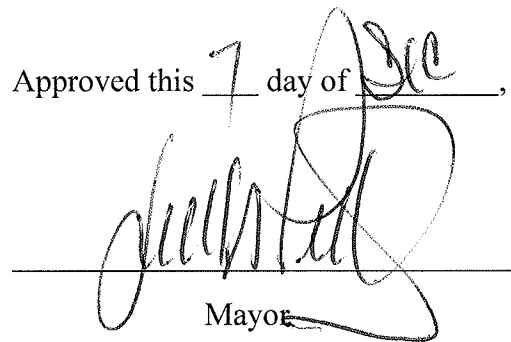 Approved this 7 day of Dec,
Mayor